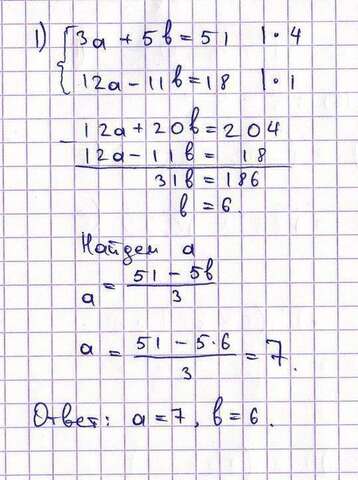 1) { 3a + 5b = 51 | · 4
12a - 11b = 18 | · 1
- 12a + 20b = 204
12a - 11b = 18
31b = 186
b = 6.
Найдем a
a = (51 - 5b) / 3
a = (51 - 5·6) / 3 = 7.
Ответ: a = 7, b = 6.